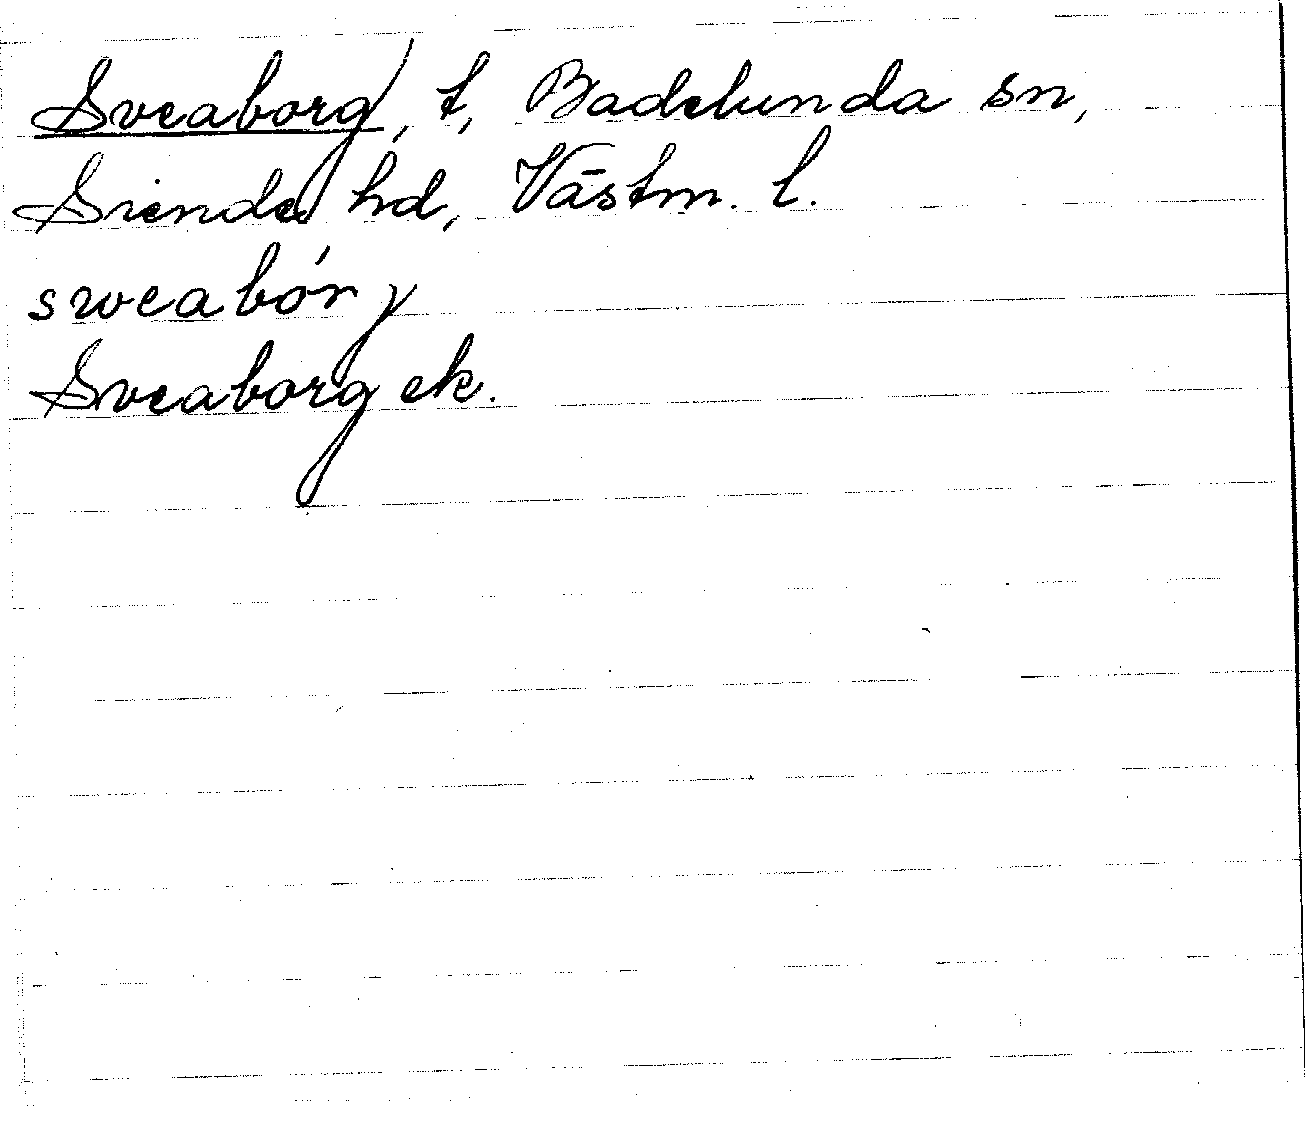 Sveaborg, t, Badelunda sn,
Siende hd, Västm. l.
sveabórγ
Sveaborg ek.